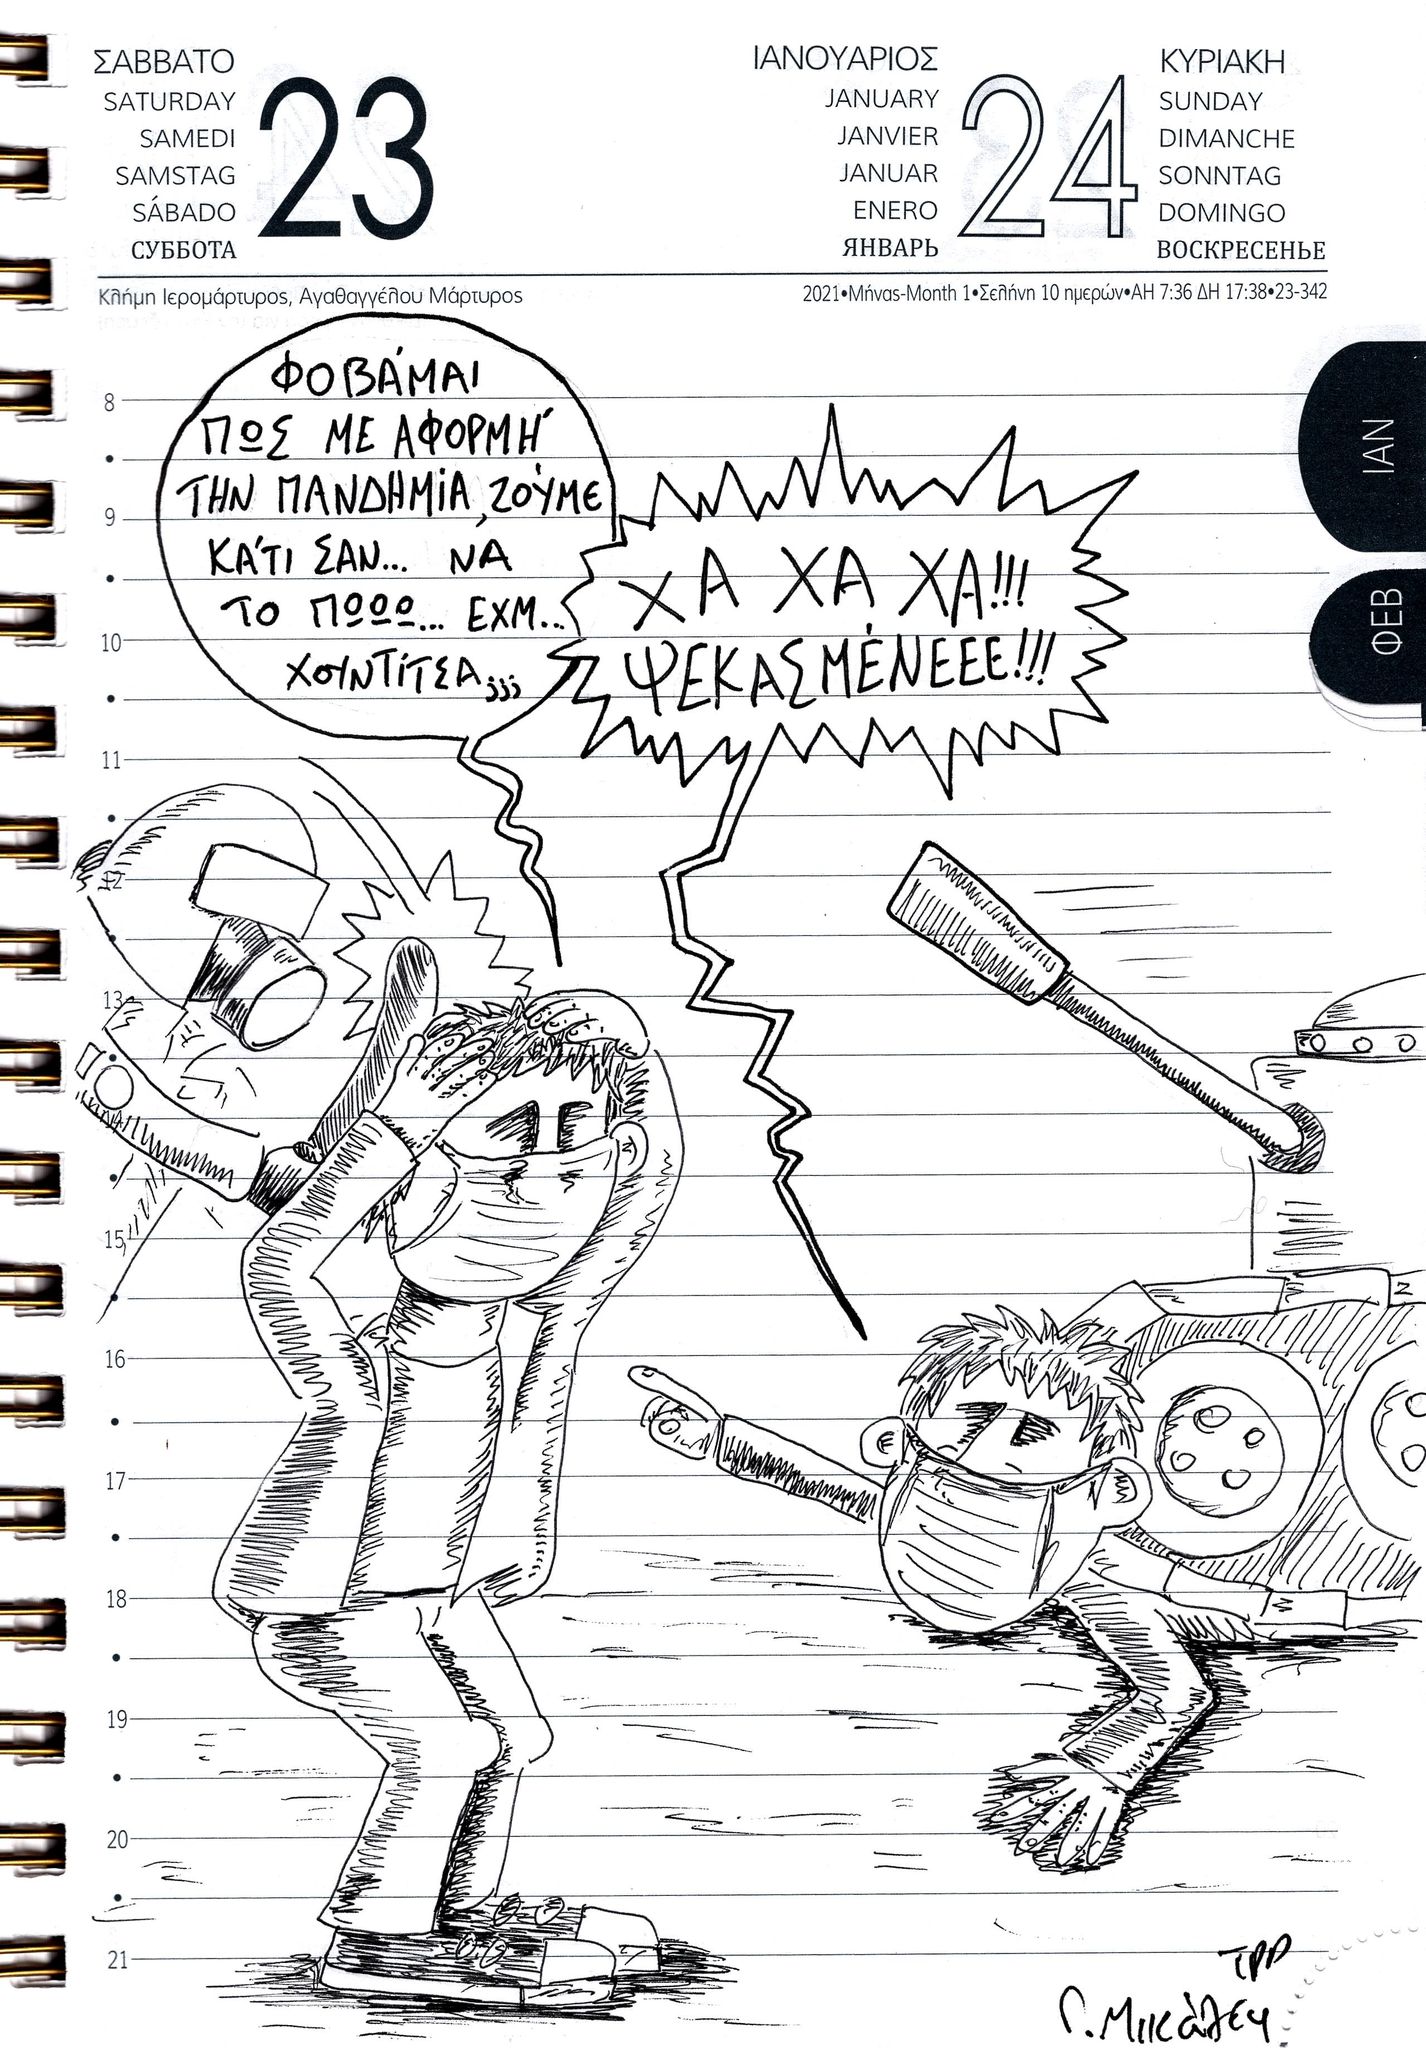 ΣΑΒΒΑΤΟ
SATURDAY
SAMEDI
SAMSTAG
SÁBADO
СУББОТА
23
ΙΑΝΟΥΑΡΙΟΣ
JANUARY
JANVIER
JANUAR
ENERO
ЯНВАРЬ
24
ΚΥΡΙΑΚΗ
SUNDAY
DIMANCHE
SONNTAG
DOMINGO
ВОСКРЕСЕНЬЕ
Κλήμη Ιερομάρτυρος, Αγαθαγγέλου Μάρτυρος
2021•Μήνας-Month 1•Σελήνη 10 ημερών•ΑΗ 7:36 ΔΗ 17:38•23-342
ΙΑΝ
ΦΕΒ
ΦΟΒΆΜΑΙ
ΠΩΣ ΜΕ ΑΦΟΡΜΉ
ΤΗΝ ΠΑΝΔΗΜΊΑ, ΖΟΎΜΕ
ΚΆΤΙ ΣΑΝ... ΝΑ
ΤΟ ΠΩΩΩ... ΕΧΜ...
ΧΟΥΝΤΊΤΣΑ;;;
ΧΑ ΧΑ ΧΑ!!!
ΨΕΚΑΣΜΈΝΕΕΕ!!!
8
9
10
11
12
13
14
15
16
17
18
19
20
21
TPP